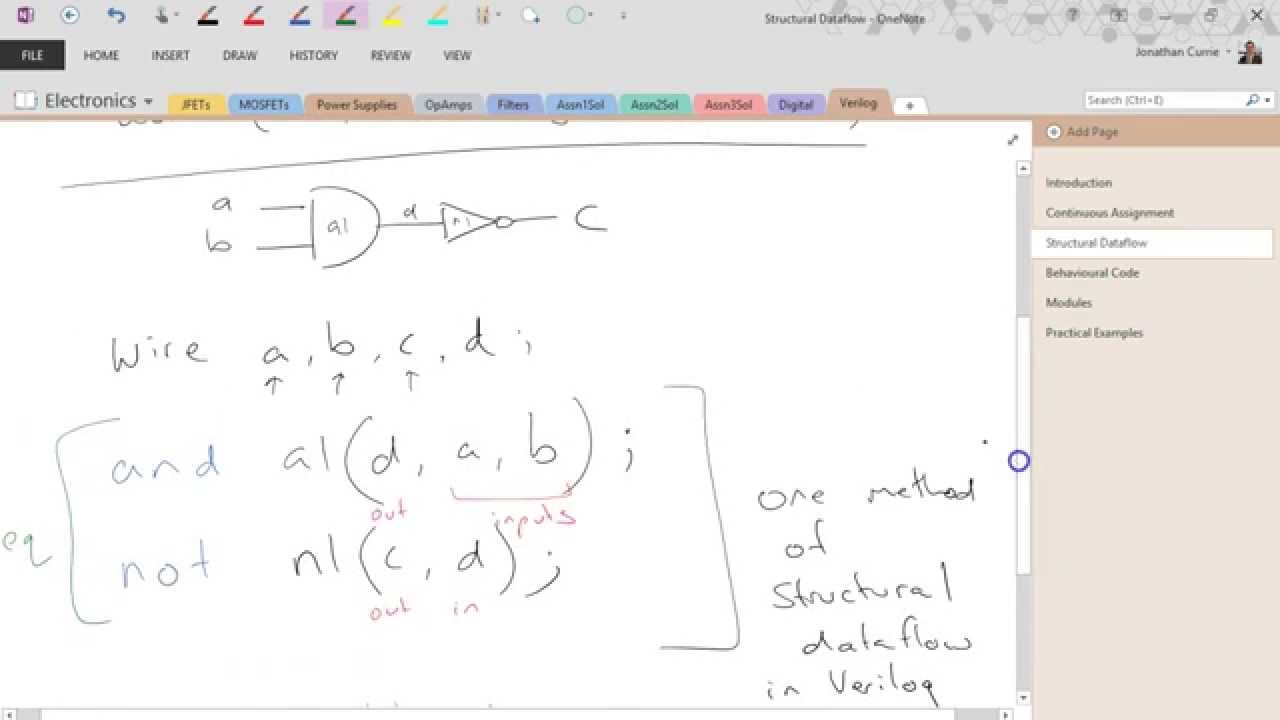 Structural Dataflow - OneNote
Jonathan Currie
FILE HOME INSERT DRAW HISTORY REVIEW VIEW
Electronics JFETs MOSFETs Power Supplies OpAmps Filters Assn1Sol Assn2Sol Assn3Sol Digital Verilog
Search (Ctrl+E)
Add Page
Introduction
Continuous Assignment
Structural Dataflow
Behavioural Code
Modules
Practical Examples
a
b
a1
d
n1
C
Wire a, b, c, d ;
and a1(d, a, b) ;
out inputs
eq
not n1(c, d) ;
out in
one method
of
Structural
dataflow
in Verilog